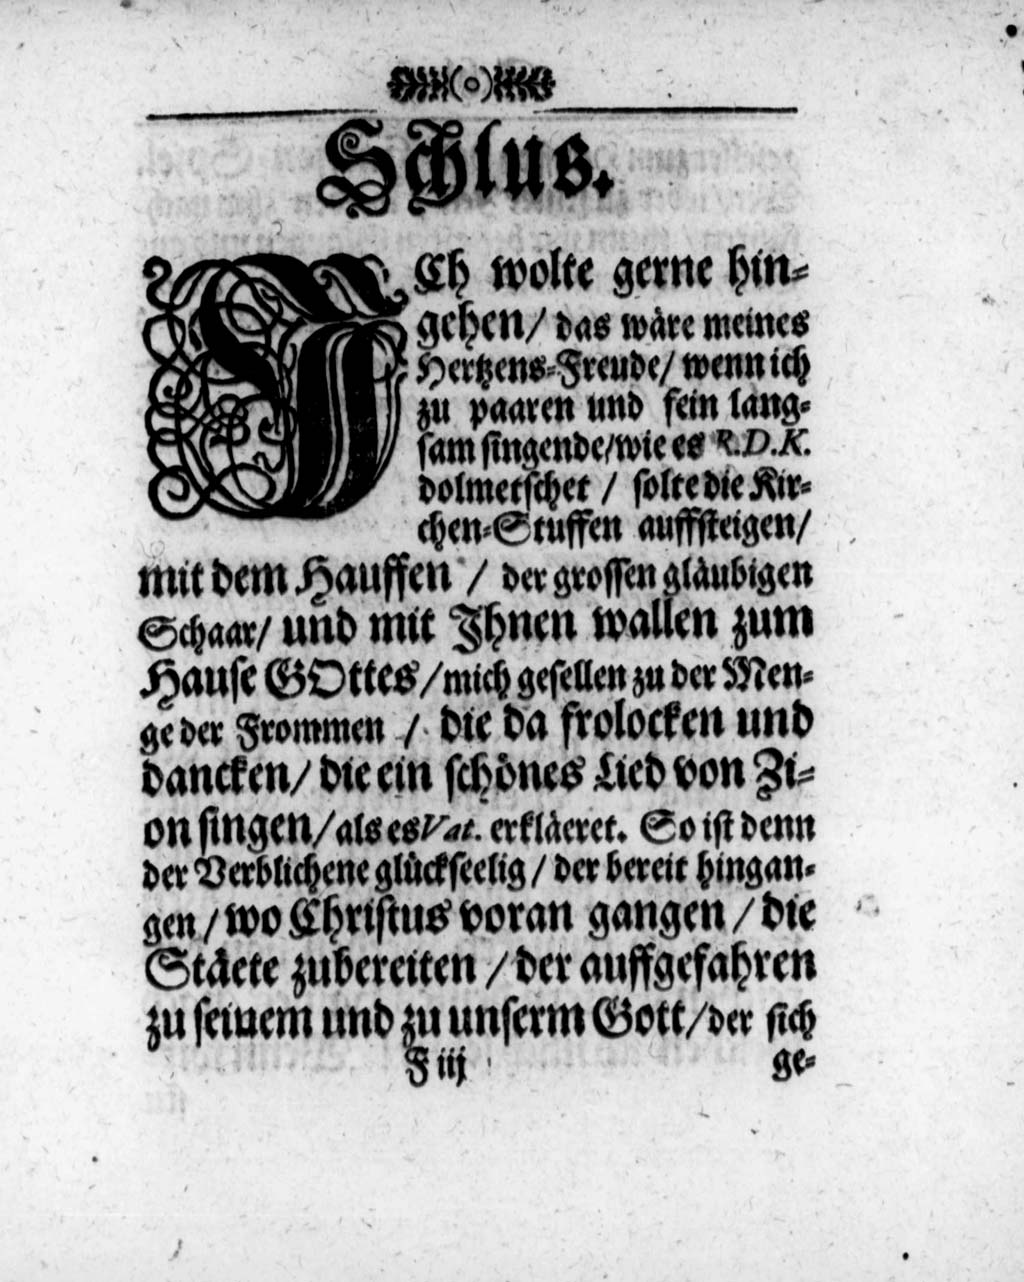 Schlus.
ICh wolte gerne hin-
gehen/ das wäre meines
Hertzens-Freude/ wenn ich
zu paaren und fein lang-
sam singende/wie es R.D.K.
dolmetschet / solte die Kir-
chen-Stuffen auffsteigen/
mit dem Hauffen / der grossen gläubigen
Schaar/ und mit Ihnen wallen zum
Hause GOttes/mich gesellen zu der Men-
ge der Frommen / die da frolocken und
dancken/ die ein schönes Lied von Zi-
on singen/als es Vat. erkläeret. So ist denn
der Verblichene glückseelig/ der bereit hingan-
gen/wo Christus voran gangen/die
Stäete zubereiten/der auffgefahren
zu seinem und zu unserm Gott/der sich
F iij ge-